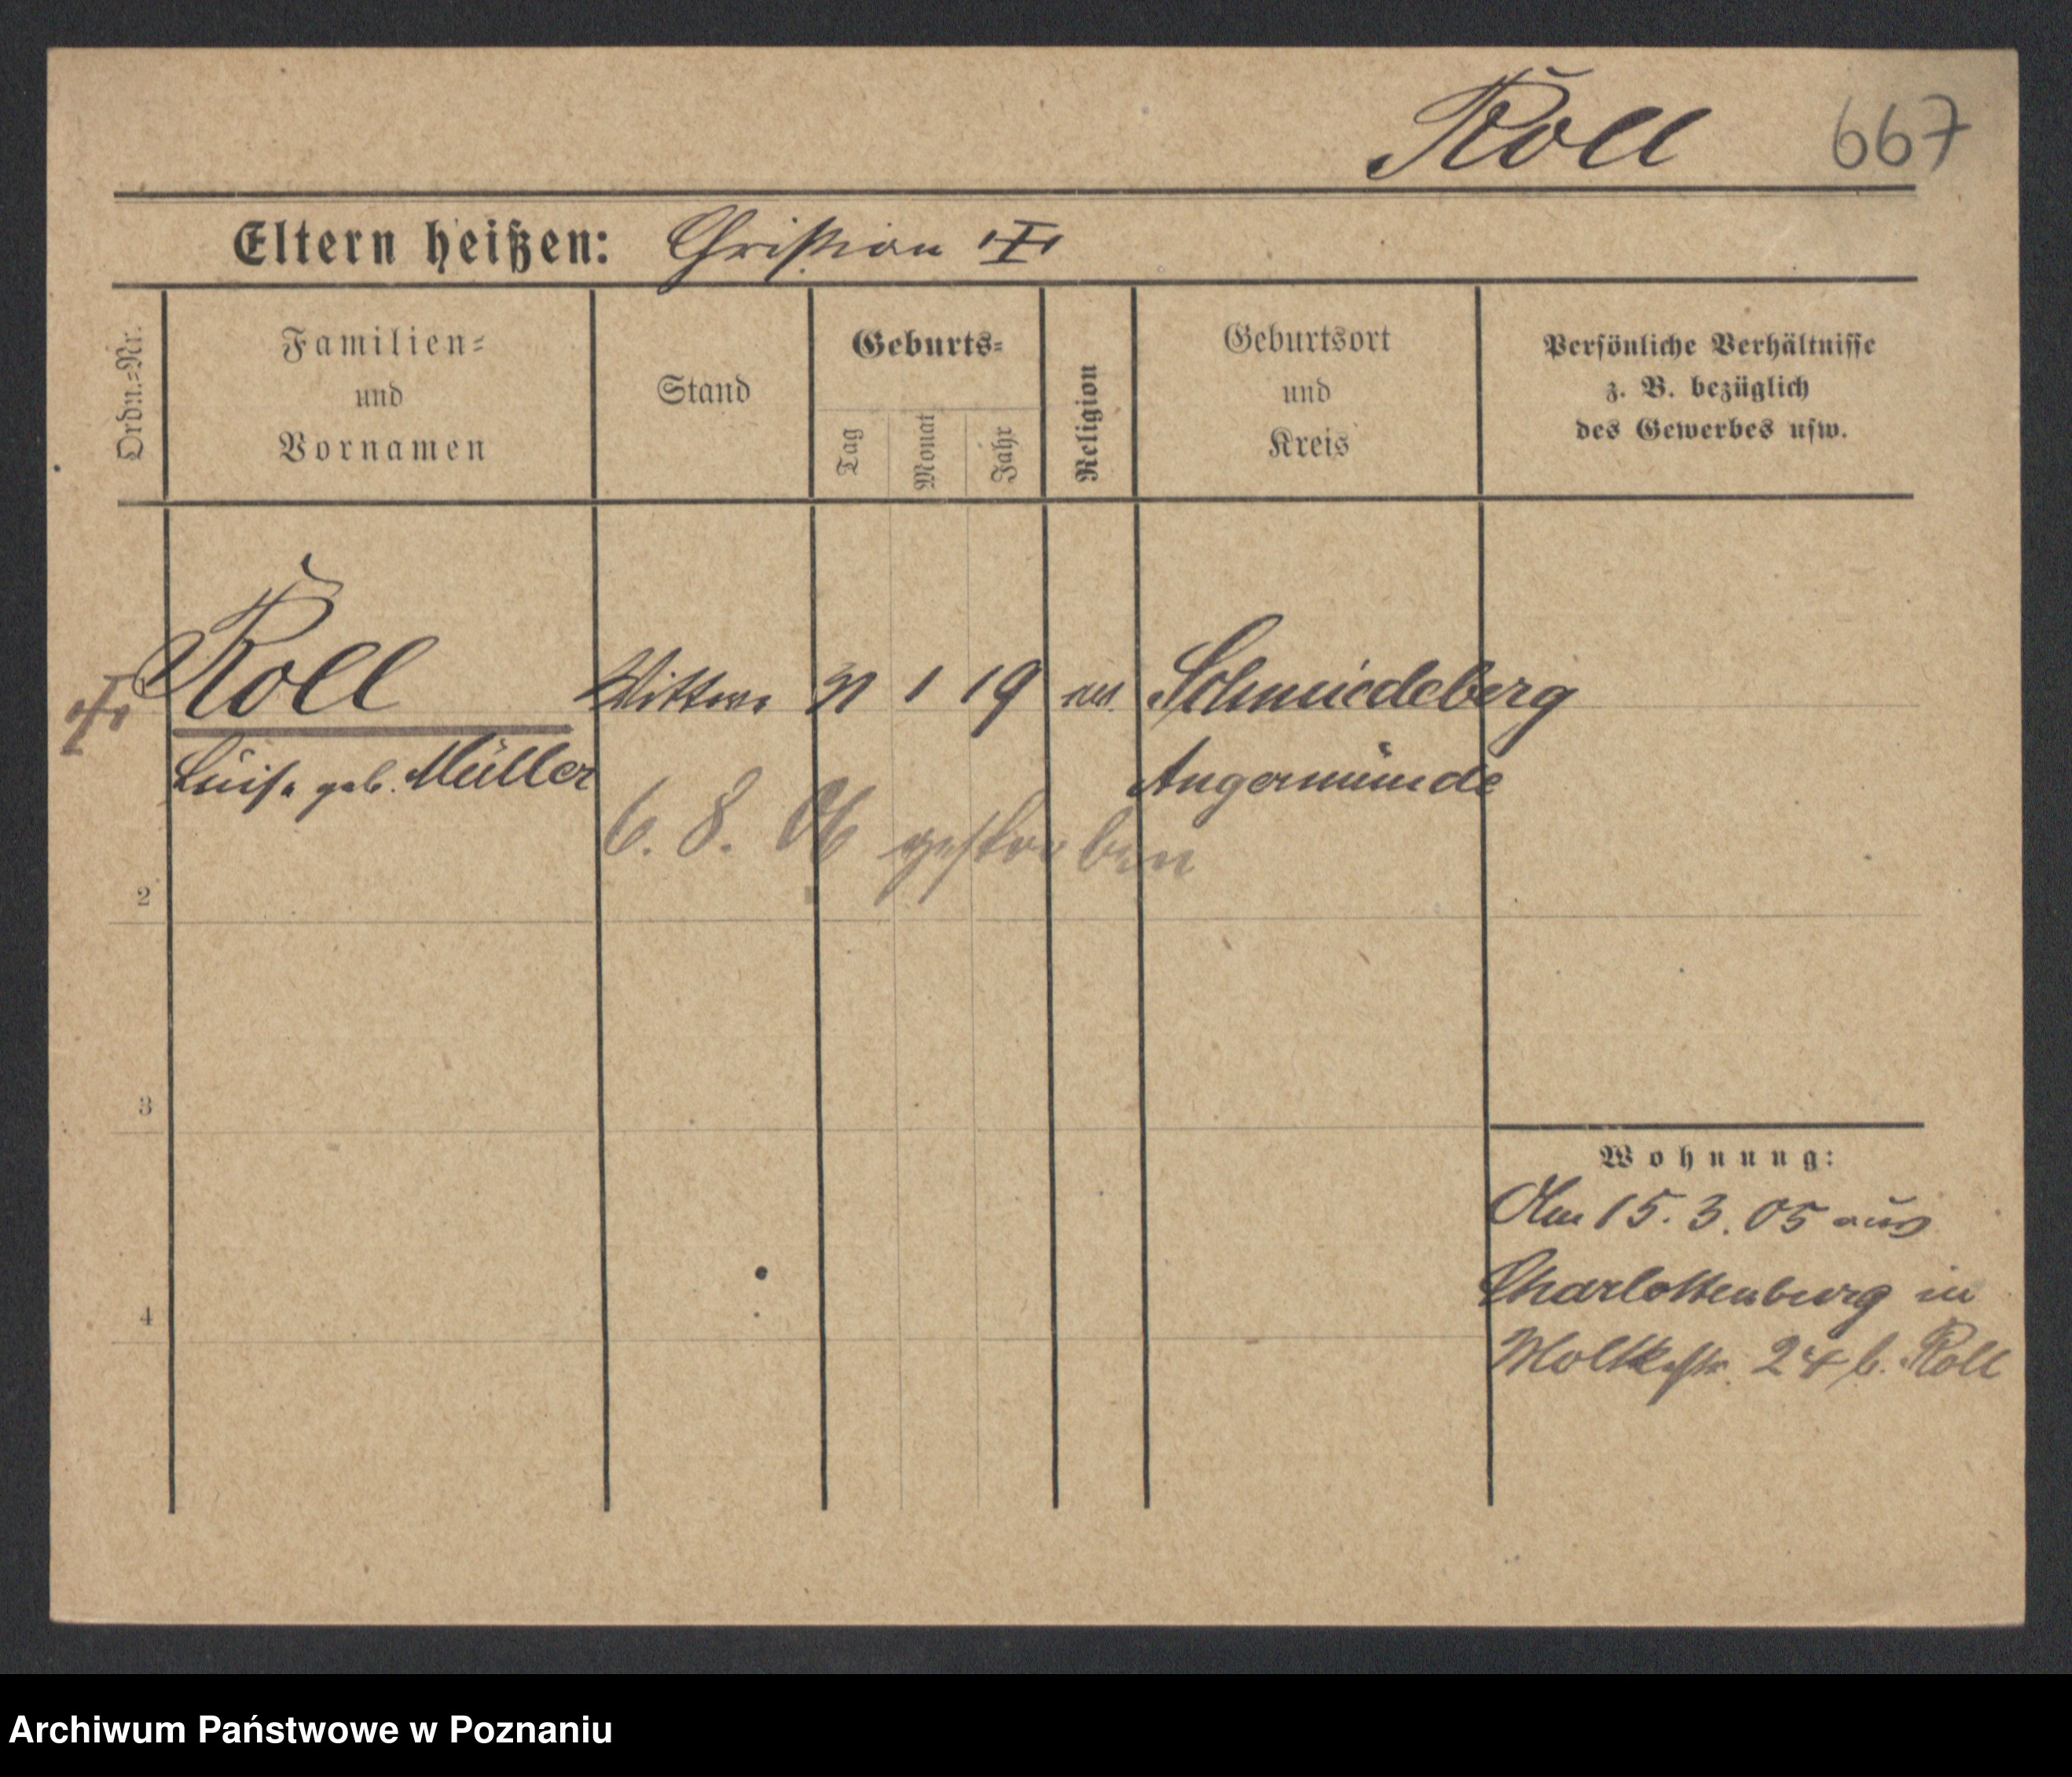 Roll 667
Eltern heißen: Christian
Ordn.=Nr.
Familien=
und
Vornamen
Stand
Geburts=
Tag
Monat
Jahr
Religion
Geburtsort
und
Kreis
Persönliche Verhältnisse
z. B. bezüglich
des Gewerbes usw.
Roll Wittwe 31 1 19 Schmiedeberg
Luise geb. Müller Angermünde
6. 8. 06 gestorben
2
3
Wohnung:
Am 15. 3. 05 aus
Charlottenburg in
4
Moltkestr. 24 b. Roll
Archiwum Państwowe w Poznaniu